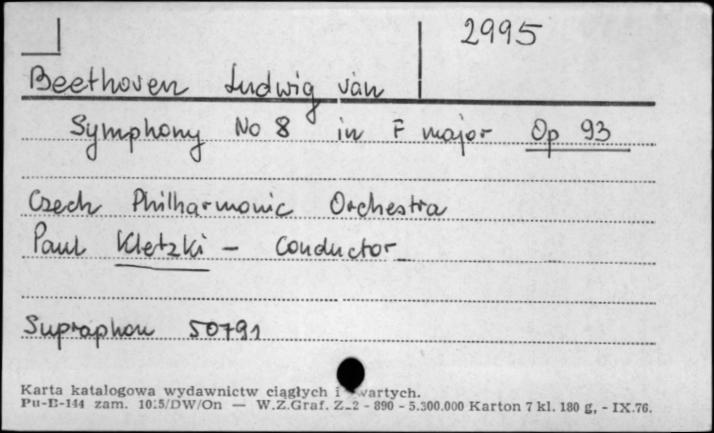 2995
Beethoven Ludwig van
Symphony No 8 in F major Op 93
Czech Philharmonic Orchestra
Paul Kletzki - Conductor
Supraphon 50791
Karta katalogowa wydawnictw ciągłych i wartych.
Pu-B-144 zam. 1015/DW/On — W.Z.Graf. Z-2 - 890 - 5.300.000 Karton 7 kl. 180 g, - IX.76.